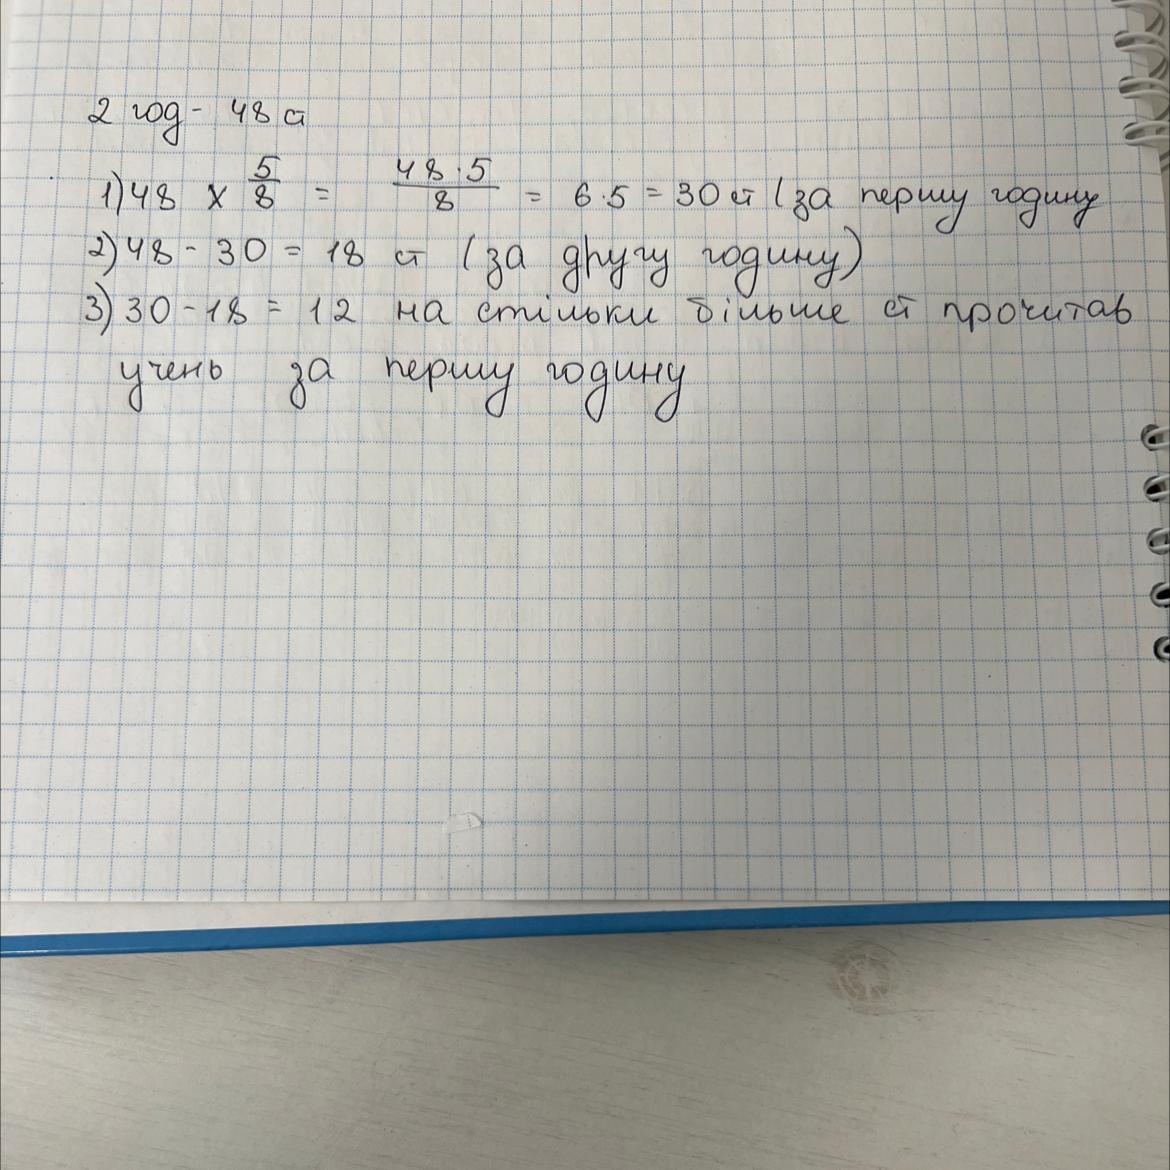 2 год - 48 ст
1) 48 x 5/8 = 48·5/8 = 6·5 = 30 ст (за першу годину
2) 48 - 30 = 18 ст (за другу годину)
3) 30 - 18 = 12 на стільки більше ст прочитав
учень за першу годину